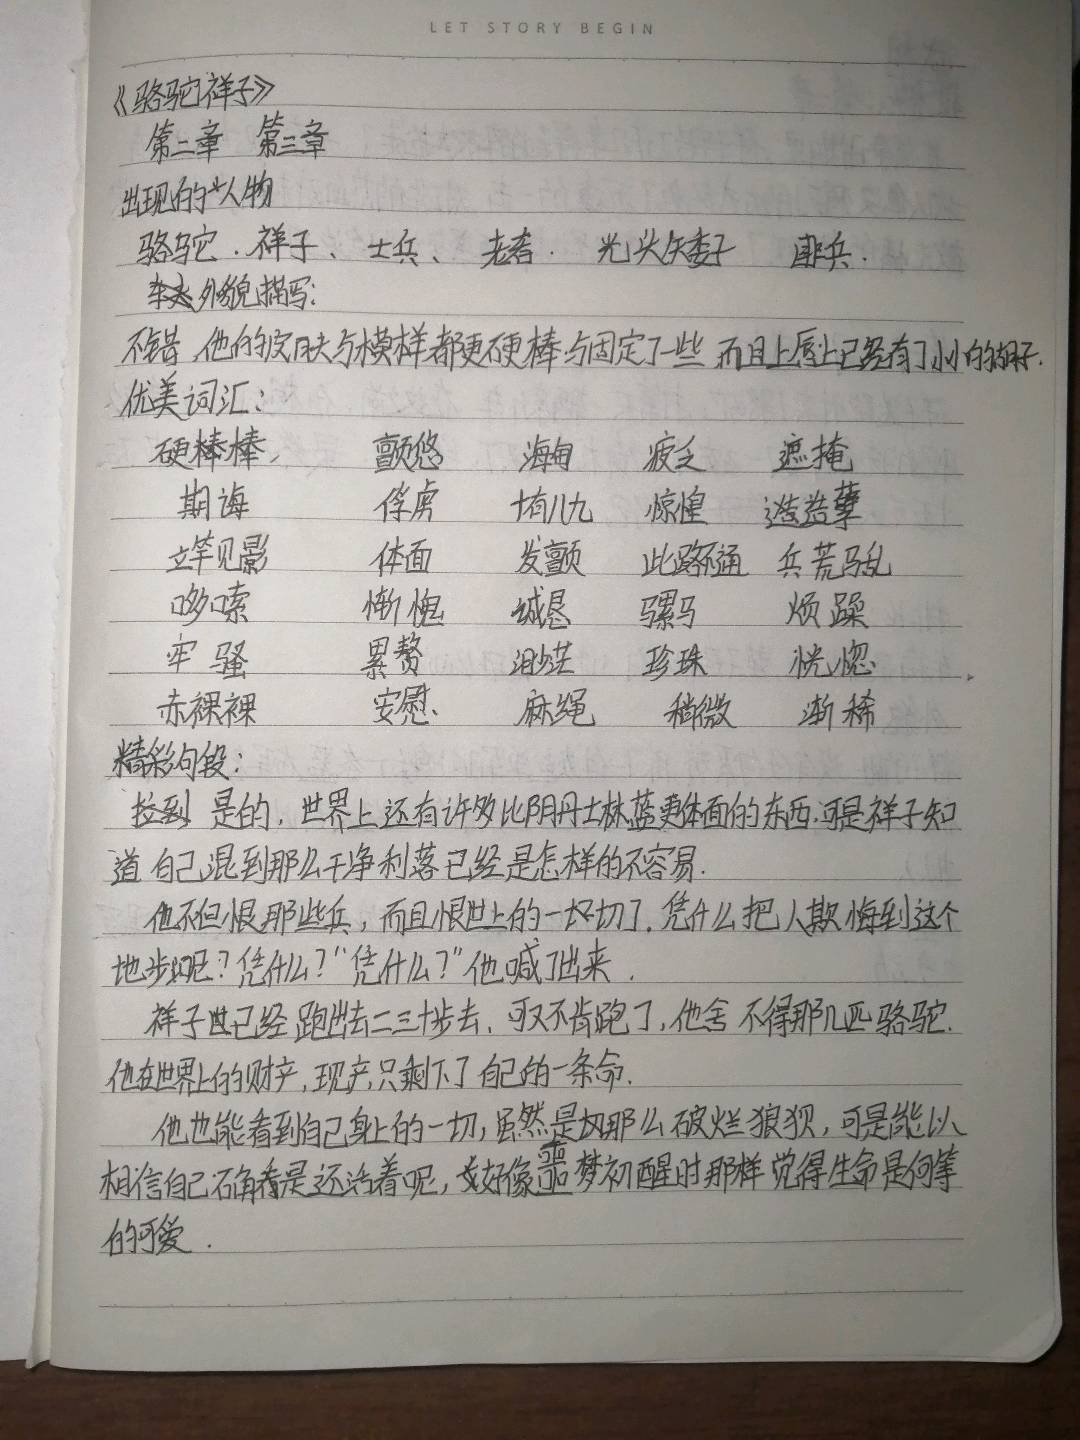 LET STORY BEGIN
《骆驼祥子》
第二章 第三章
出现的人物
骆驼、祥子、士兵、老者. 光头矮子
外貌描写:
不错,他的皮肤与模样都更硬棒与固定了一些 而且上唇上已经有了小小的胡子.
优美词汇:
硬棒棒 颤悠 海甸 疲乏 遮掩
期诲 俘虏 十有八九 惊惶 造孽
立竿见影 体面 发颤 此路不通 兵荒马乱
哆嗦 惭愧 诚恳 骡马 烦躁
牢骚 累赘 渺茫 珍珠 恍惚
赤裸裸 安慰 麻绳 稍微 渐稀
精彩句段:
是的,世界上还有许多比阴丹士林蓝更体面的东西,可是祥子知
道自己混到那么干净利落已经是怎样的不容易.
他不但恨那些兵,而且恨世上的一切了.凭什么把人欺侮到这个
地步呢?凭什么?"凭什么?"他喊了出来.
祥子已经跑出去二三十步去,可又不肯跑了,他舍不得那几匹骆驼.
他在世界上的财产,现在只剩下了自己的一条命.
他也能看到自己身上的一切,虽然是那么破烂狼狈,可是能以
相信自己确是还活着呢,好像噩梦初醒时那样觉得生命是何等
的可爱.